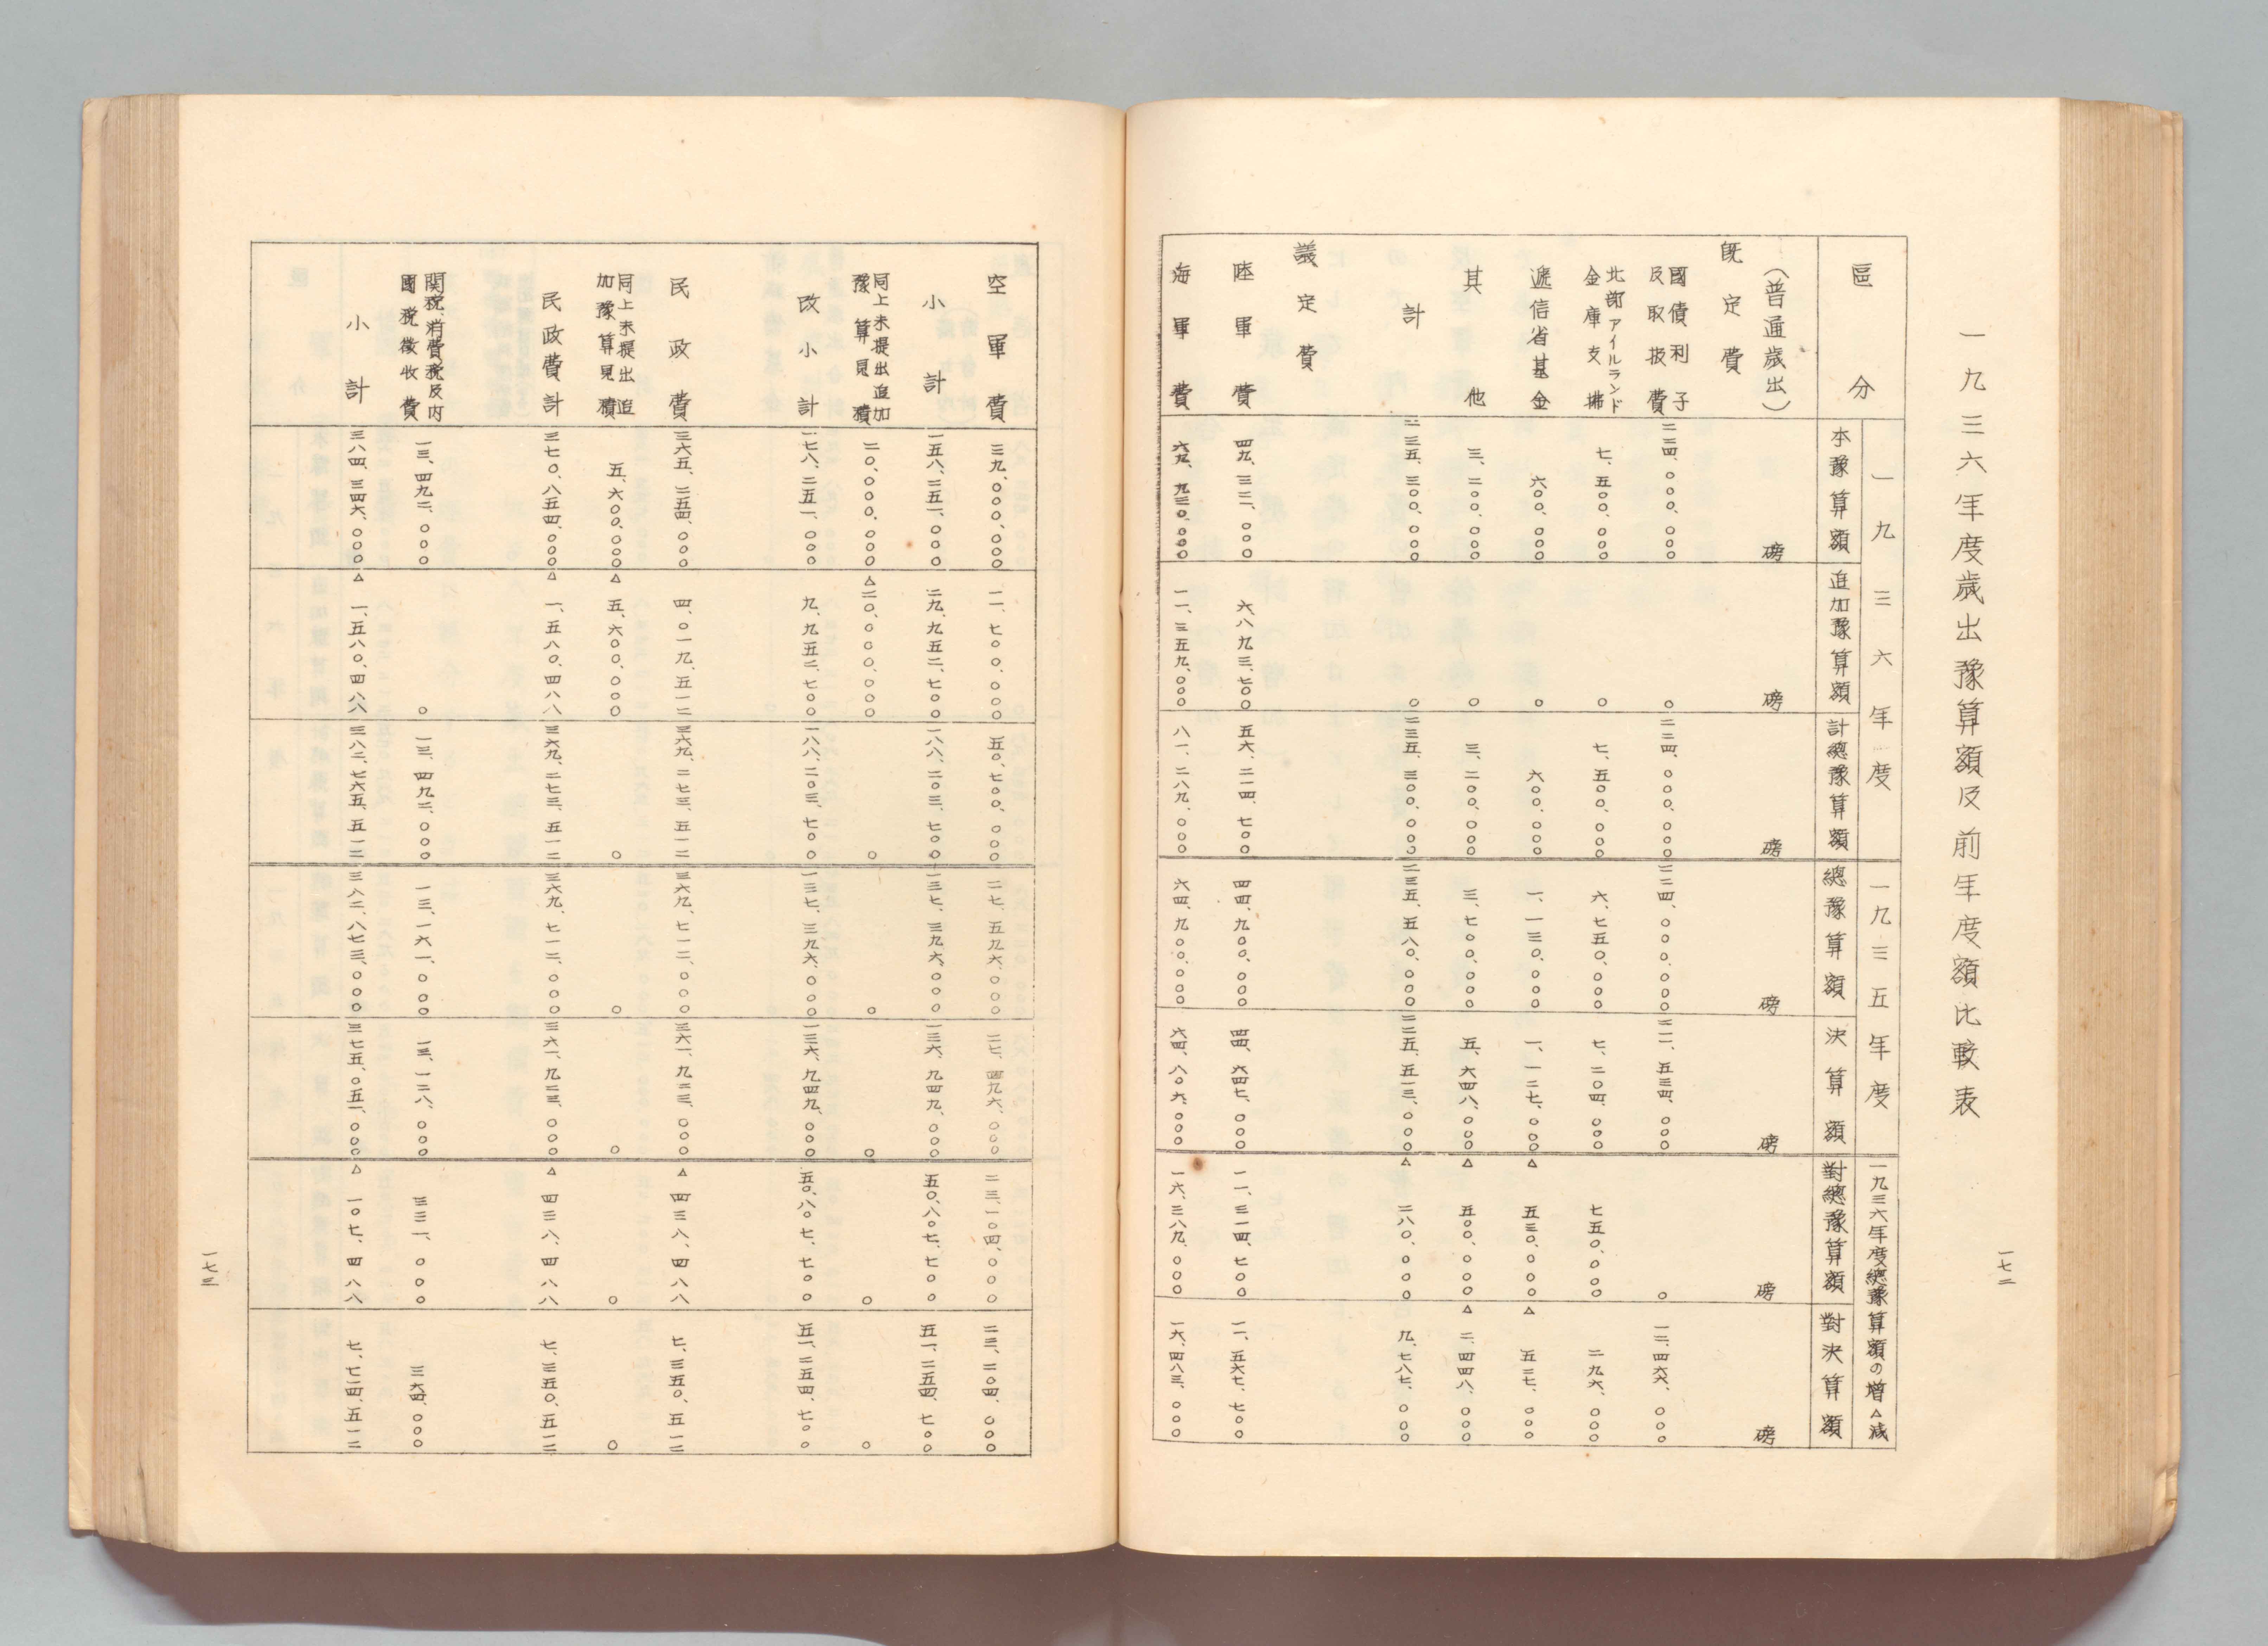 一九三六年度歳出豫算額及前年度額比較表
一七二
區分 一九三六年度 一九三五年度 一九三六年度總豫算額の増△減
本豫算額 追加豫算額 計總豫算額 總豫算額 決算額 對總豫算額 對決算額
(普通歳出) 磅 磅 磅 磅 磅 磅 磅
既定費
國債利子
及取扱費 二二四、〇〇〇、〇〇〇 〇 二二四、〇〇〇、〇〇〇 二二四、〇〇〇、〇〇〇 二一一、五三四、〇〇〇 〇 一二、四六六、〇〇〇
北部アイルランド
金庫支拂 七、五〇〇、〇〇〇 〇 七、五〇〇、〇〇〇 六、七五〇、〇〇〇 七、二〇四、〇〇〇 七五〇、〇〇〇 二九六、〇〇〇
遞信省基金 六〇〇、〇〇〇 〇 六〇〇、〇〇〇 一、一三〇、〇〇〇 一、一二七、〇〇〇 △五三〇、〇〇〇 △五二七、〇〇〇
其他 三、二〇〇、〇〇〇 〇 三、二〇〇、〇〇〇 三、七〇〇、〇〇〇 五、六四八、〇〇〇 △五〇〇、〇〇〇 △二、四四八、〇〇〇
計 二三五、三〇〇、〇〇〇 〇 二三五、三〇〇、〇〇〇 二三五、五八〇、〇〇〇 二二五、五一三、〇〇〇 △二八〇、〇〇〇 九、七八七、〇〇〇
議定費
陸軍費 四九、三二一、〇〇〇 六、八九三、七〇〇 五六、二一四、七〇〇 四四、九〇〇、〇〇〇 四四、六四七、〇〇〇 一一、三一四、七〇〇 一一、五六七、七〇〇
海軍費 六九、九三〇、〇〇〇 一一、三五九、〇〇〇 八一、二八九、〇〇〇 六四、九〇〇、〇〇〇 六四、八〇六、〇〇〇 一六、三八九、〇〇〇 一六、四八三、〇〇〇
空軍費 三九、〇〇〇、〇〇〇 一一、七〇〇、〇〇〇 五〇、七〇〇、〇〇〇 二七、五九六、〇〇〇 二七、四九六、〇〇〇 二三、一〇四、〇〇〇 二三、二〇四、〇〇〇
小計 一五八、二五一、〇〇〇 二九、九五二、七〇〇 一八八、二〇三、七〇〇 一三七、三九六、〇〇〇 一三六、九四九、〇〇〇 五〇、八〇七、七〇〇 五一、二五四、七〇〇
同上未提出追加
豫算見積 二〇、〇〇〇、〇〇〇 △二〇、〇〇〇、〇〇〇 〇 〇 〇 〇 〇
改小計 一七八、二五一、〇〇〇 九、九五二、七〇〇 一八八、二〇三、七〇〇 一三七、三九六、〇〇〇 一三六、九四九、〇〇〇 五〇、八〇七、七〇〇 五一、二五四、七〇〇
民政費 三六五、二五四、〇〇〇 四、〇一九、五一二 三六九、二七三、五一二 三六九、七一二、〇〇〇 三六一、九二三、〇〇〇 △四三八、四八八 七、三五〇、五一二
同上未提出追
加豫算見積 五、六〇〇、〇〇〇 △五、六〇〇、〇〇〇 〇 〇 〇 〇 〇
民政費計 三七〇、八五四、〇〇〇 △一、五八〇、四八八 三六九、二七三、五一二 三六九、七一二、〇〇〇 三六一、九二三、〇〇〇 △四三八、四八八 七、三五〇、五一二
関税、消費税及内
國税徴收費 一三、四九二、〇〇〇 〇 一三、四九二、〇〇〇 一三、一六一、〇〇〇 一三、一二八、〇〇〇 三三一、〇〇〇 三六四、〇〇〇
小計 三八四、三四六、〇〇〇 △一、五八〇、四八八 三八二、七六五、五一二 三八二、八七三、〇〇〇 三七五、〇五一、〇〇〇 △一〇七、四八八 七、七一四、五一二
一七三